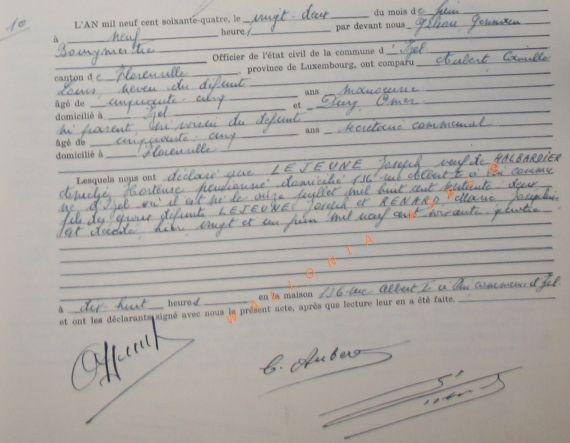 10
L'AN mil neuf cent soixante-quatre, le vingt-deux du mois de juin
à neuf heures par devant nous Gilson Germain
Bourgmestre Officier de l'état civil de la commune d'Izel
canton de Florenville province de Luxembourg, ont comparu Aubert Camille
Louis, neveu du défunt
âgé de cinquante-cinq ans manoeuvre
domicilié à Izel et Omer
ni parent, ni voisin du défunt
âgé de cinquante-cinq ans secrétaire communal
domicilié à Florenville
Lesquels nous ont déclaré que LEJEUNE Joseph veuf de MALBARDIER
Hortense pensionné domicilié 136 rue Albert I à en commu
ne d'Izel où il est né le onze juillet mil huit cent septante-deux
fils des époux défunts LEJEUNE Joseph et RENARD Marie Josephine
est décédé, hier vingt et un juin mil neuf cent soixante-quatre
WALLONIA
à dix-huit heures en la maison 136 rue Albert I à commune d'Izel
et ont les déclarants signé avec nous le présent acte, après que lecture leur en a été faite.
C. Aubert